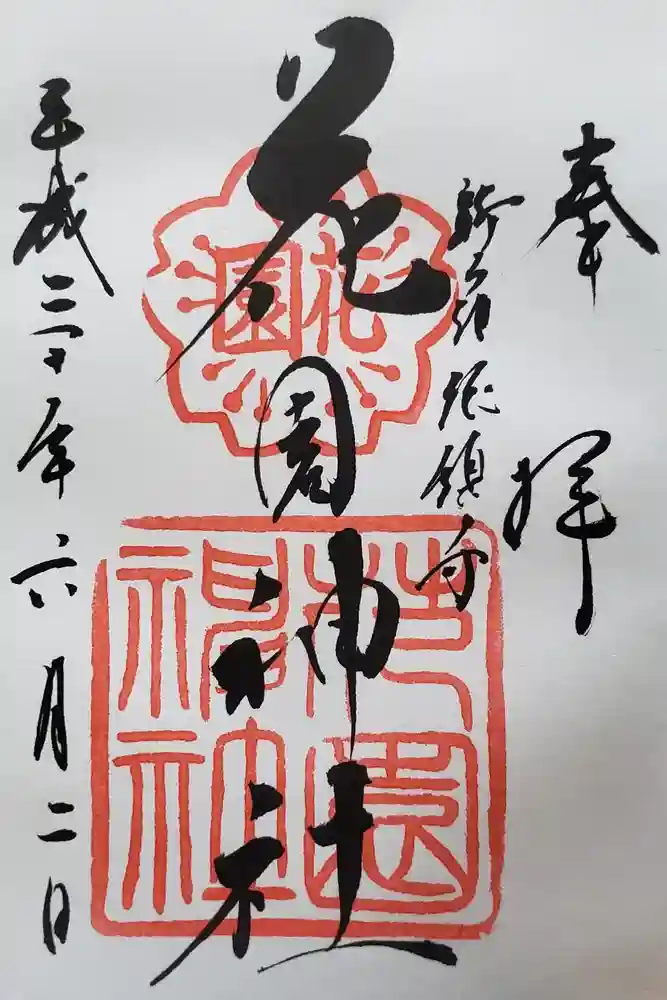 奉拝
新宿総鎮守
花園神社
花園
花園神社
平成二十年六月二日